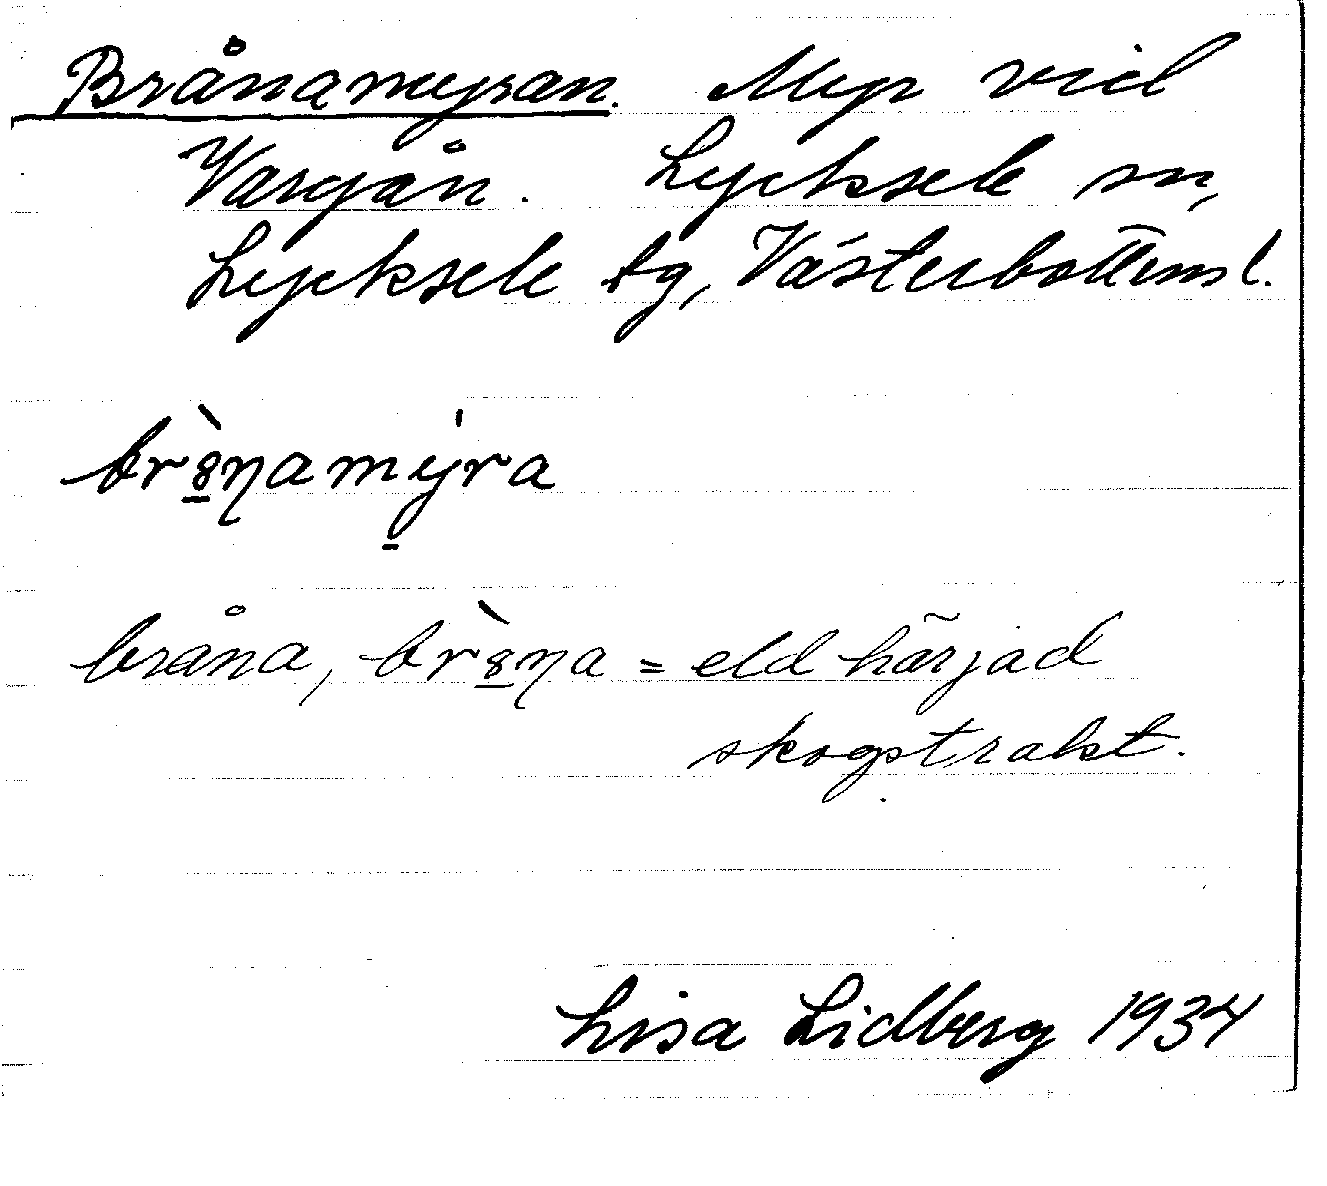 Brånamyran. Myr vid
Vargån. Lycksele sn,
Lycksele tg, Västerbottens l.
br8̲̀ŋamy̲̍ra
bråna, br8̲̀ŋa = eld härjad
skogstrakt.
Lisa Lidberg 1934